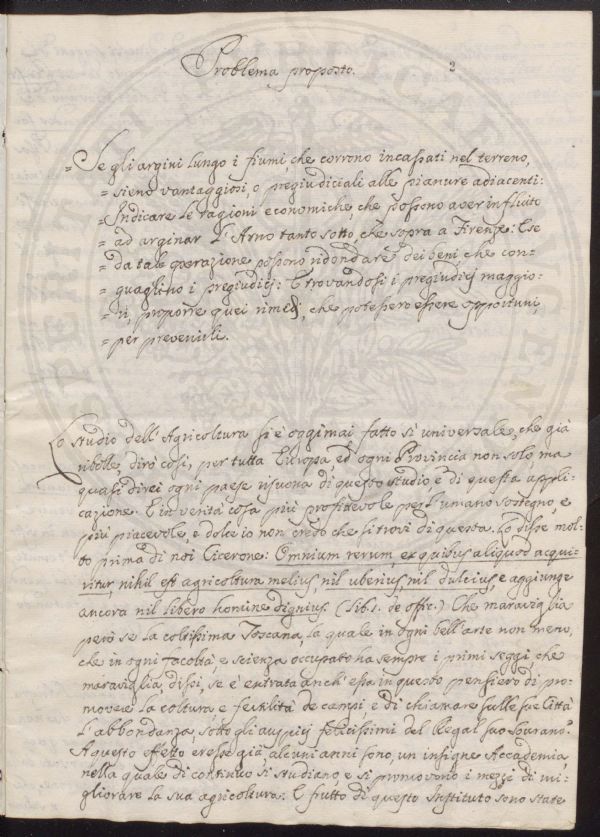 Problema proposto.
2
= Se gli argini lungo i fiumi, che corrono incassati nel terreno,
= sieno vantaggiosi, o pregiudiciali alle pianure adiacenti:
= Indicare le ragioni economiche, che possono aver influito
= ad arginar l'Arno tanto sotto, che sopra a Firenze: E se
= da tale operazione possono ridondare dei beni, che con-
= guaglino i pregiudizj: E trovandosi i pregiudizj maggio-
= ri, proporre quei rimedj, che potessero essere opportuni,
= per prevenirli.
Lo studio dell'Agricoltura si è oggimai fatto sì universale, che già
ribolle, dirò così, per tutta Europa, ed ogni Provincia non solo ma
quasi direi ogni paese risuona di questo studio e di questa appli-
cazione. E in verità cosa più profittevole per l'umano sostegno, e
più piacevole, e dolce io non credo che si trovi di questa. Lo disse mol-
to prima di noi Cicerone: Omnium rerum, ex quibus aliquod acqui-
ritur, nihil est agricoltura melius, nil uberius, nil dulcius, e aggiunge
ancora nil libero homine dignius. (lib. 1. de offic.) Che maraviglia
però se la coltissima Toscana, la quale in ogni bell'arte non meno,
che in ogni facoltà, e scienza occupato ha sempre i primi seggi, che
maraviglia, dissi, se è entrata anch'essa in questo pensiero di pro-
movere la coltura, e fertilità de campi e di chiamare sulle sue Città
l'abbondanza, sotto gli auspicj felicissimi del Regal suo Sovrano?
A questo effetto eresse già, alcuni anni sono, un insigne Accademia,
nella quale di continuo si studiano, e si promovono i mezzi di mi-
gliorare la sua agricoltura: E frutto di questo Instituto sono state